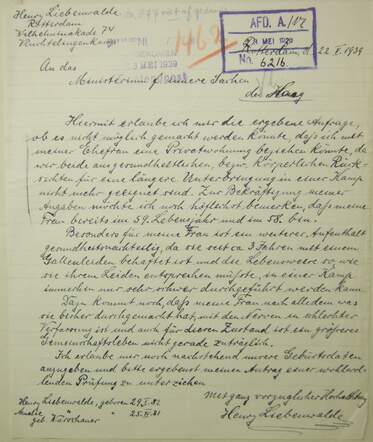 Henry Liebenwalde
Rotterdam
Wilhelminakade 74
Vluchtelingenkamp
1462
AFD. A/
MEI 1939
No. 6216.
MEI 1939
Rotterdam, d. 22. V. 1939
An das
Ministerium f. innere Sachen
den Haag
Hiermit erlaube ich mir die ergebene Anfrage,
ob es nicht möglich gemacht werden könnte, daß ich mit
meiner Ehefrau eine Privatwohnung beziehen könnte, da
wir beide aus gesundheitlichen, bezw. körperlichen Rück-
sichten für eine längere Unterbringung in einer Kamp
nicht mehr geeignet sind. Zur Bekräftigung meiner
Angaben möchte ich noch höflichst bemerken, daß meine
Frau bereits im 59. Lebensjahr und im 58. bin.
Besonders für meine Frau ist ein weiterer Aufenthalt
gesundheitsnachteilig, da sie seit ca 3 Jahren mit einem
Gallenleiden behaftet ist und die Lebensweise so, wie
sie ihrem Leiden entsprechen müßte, in einer Kamp
immerhin nur sehr schwer durchgeführt werden kann.
Dazu kommt noch, daß meine Frau nach alledem was
sie bisher durchgemacht hat, mit den Nerven in schlechter
Verfassung ist und auch für diesen Zustand ist ein größeres
Gemeinschaftsleben nicht gerade zuträglich.
Ich erlaube mir noch nachstehend unsere Geburtsdaten
anzugeben und bitte ergebenst meinen Antrag einer wohlwol-
lenden Prüfung zu unterziehen
mit ganz vorzüglicher Hochachtung
Henry Liebenwalde
Henry Liebenwalde, geboren 29. 82
Amalie " 25. 81
geb. Warschauer